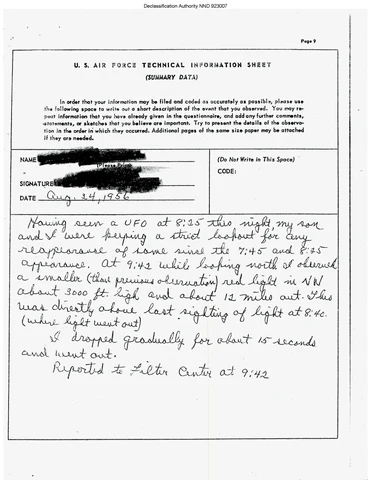 Declassification Authority NND 923007
Page 9
U. S. AIR FORCE TECHNICAL INFORMATION SHEET
(SUMMARY DATA)
In order that your information may be filed and coded as accurately as possible, please use
the following space to write out a short description of the event that you observed. You may re-
peat information that you have already given in the questionnaire, and add any further comments,
statements, or sketches that you believe are important. Try to present the details of the observa-
tion in the order in which they occurred. Additional pages of the same size paper may be attached
if they are needed.
NAME
(Please Print)
SIGNATURE
DATE Aug. 24, 1956
(Do Not Write in This Space)
CODE:
Having seen a UFO at 8:25 this night, my son
and I were keeping a strict lookout for any
reappearance of same since the 7:45 and 8:25
appearance. At 9:42 while looking north I observed
a smaller (than previous observation) red light in NW
about 3000 ft. high and about 12 miles out. This
was directly above last sighting of light at 8:40.
(where light went out)
I dropped gradually for about 15 seconds
and went out.
Reported to Filter Center at 9:42